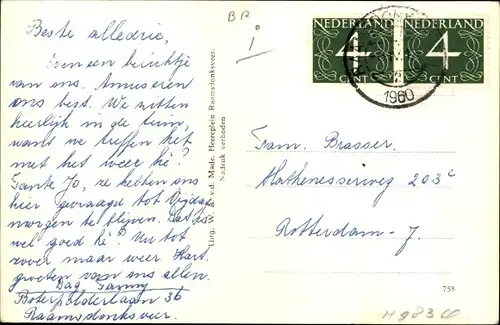 Beste alledrie,
Even een berichtje
van ons. Amuseren
ons best. We zitten
heerlijk in de tuin,
want we treffen het
met het weer hè?
Tante Jo, ze hebben ons
hier gevraagd tot Vrijdag
morgen te blijven. Dat is
wel goed hè? Nu tot
zover maar weer. Hart.
groeten van ons allen.
Dag Fanny
Boterpolderlaan 36
Raamsdonksveer.
v.d. Made, Heereplein Raamsdonksveer.
Nadruk verboden
BR
i
NEDERLAND NEDERLAND
4 4
CENT CENT
1960
Fam. Brasser.
Mathenesserweg 203c
Rotterdam-J.
758
H983